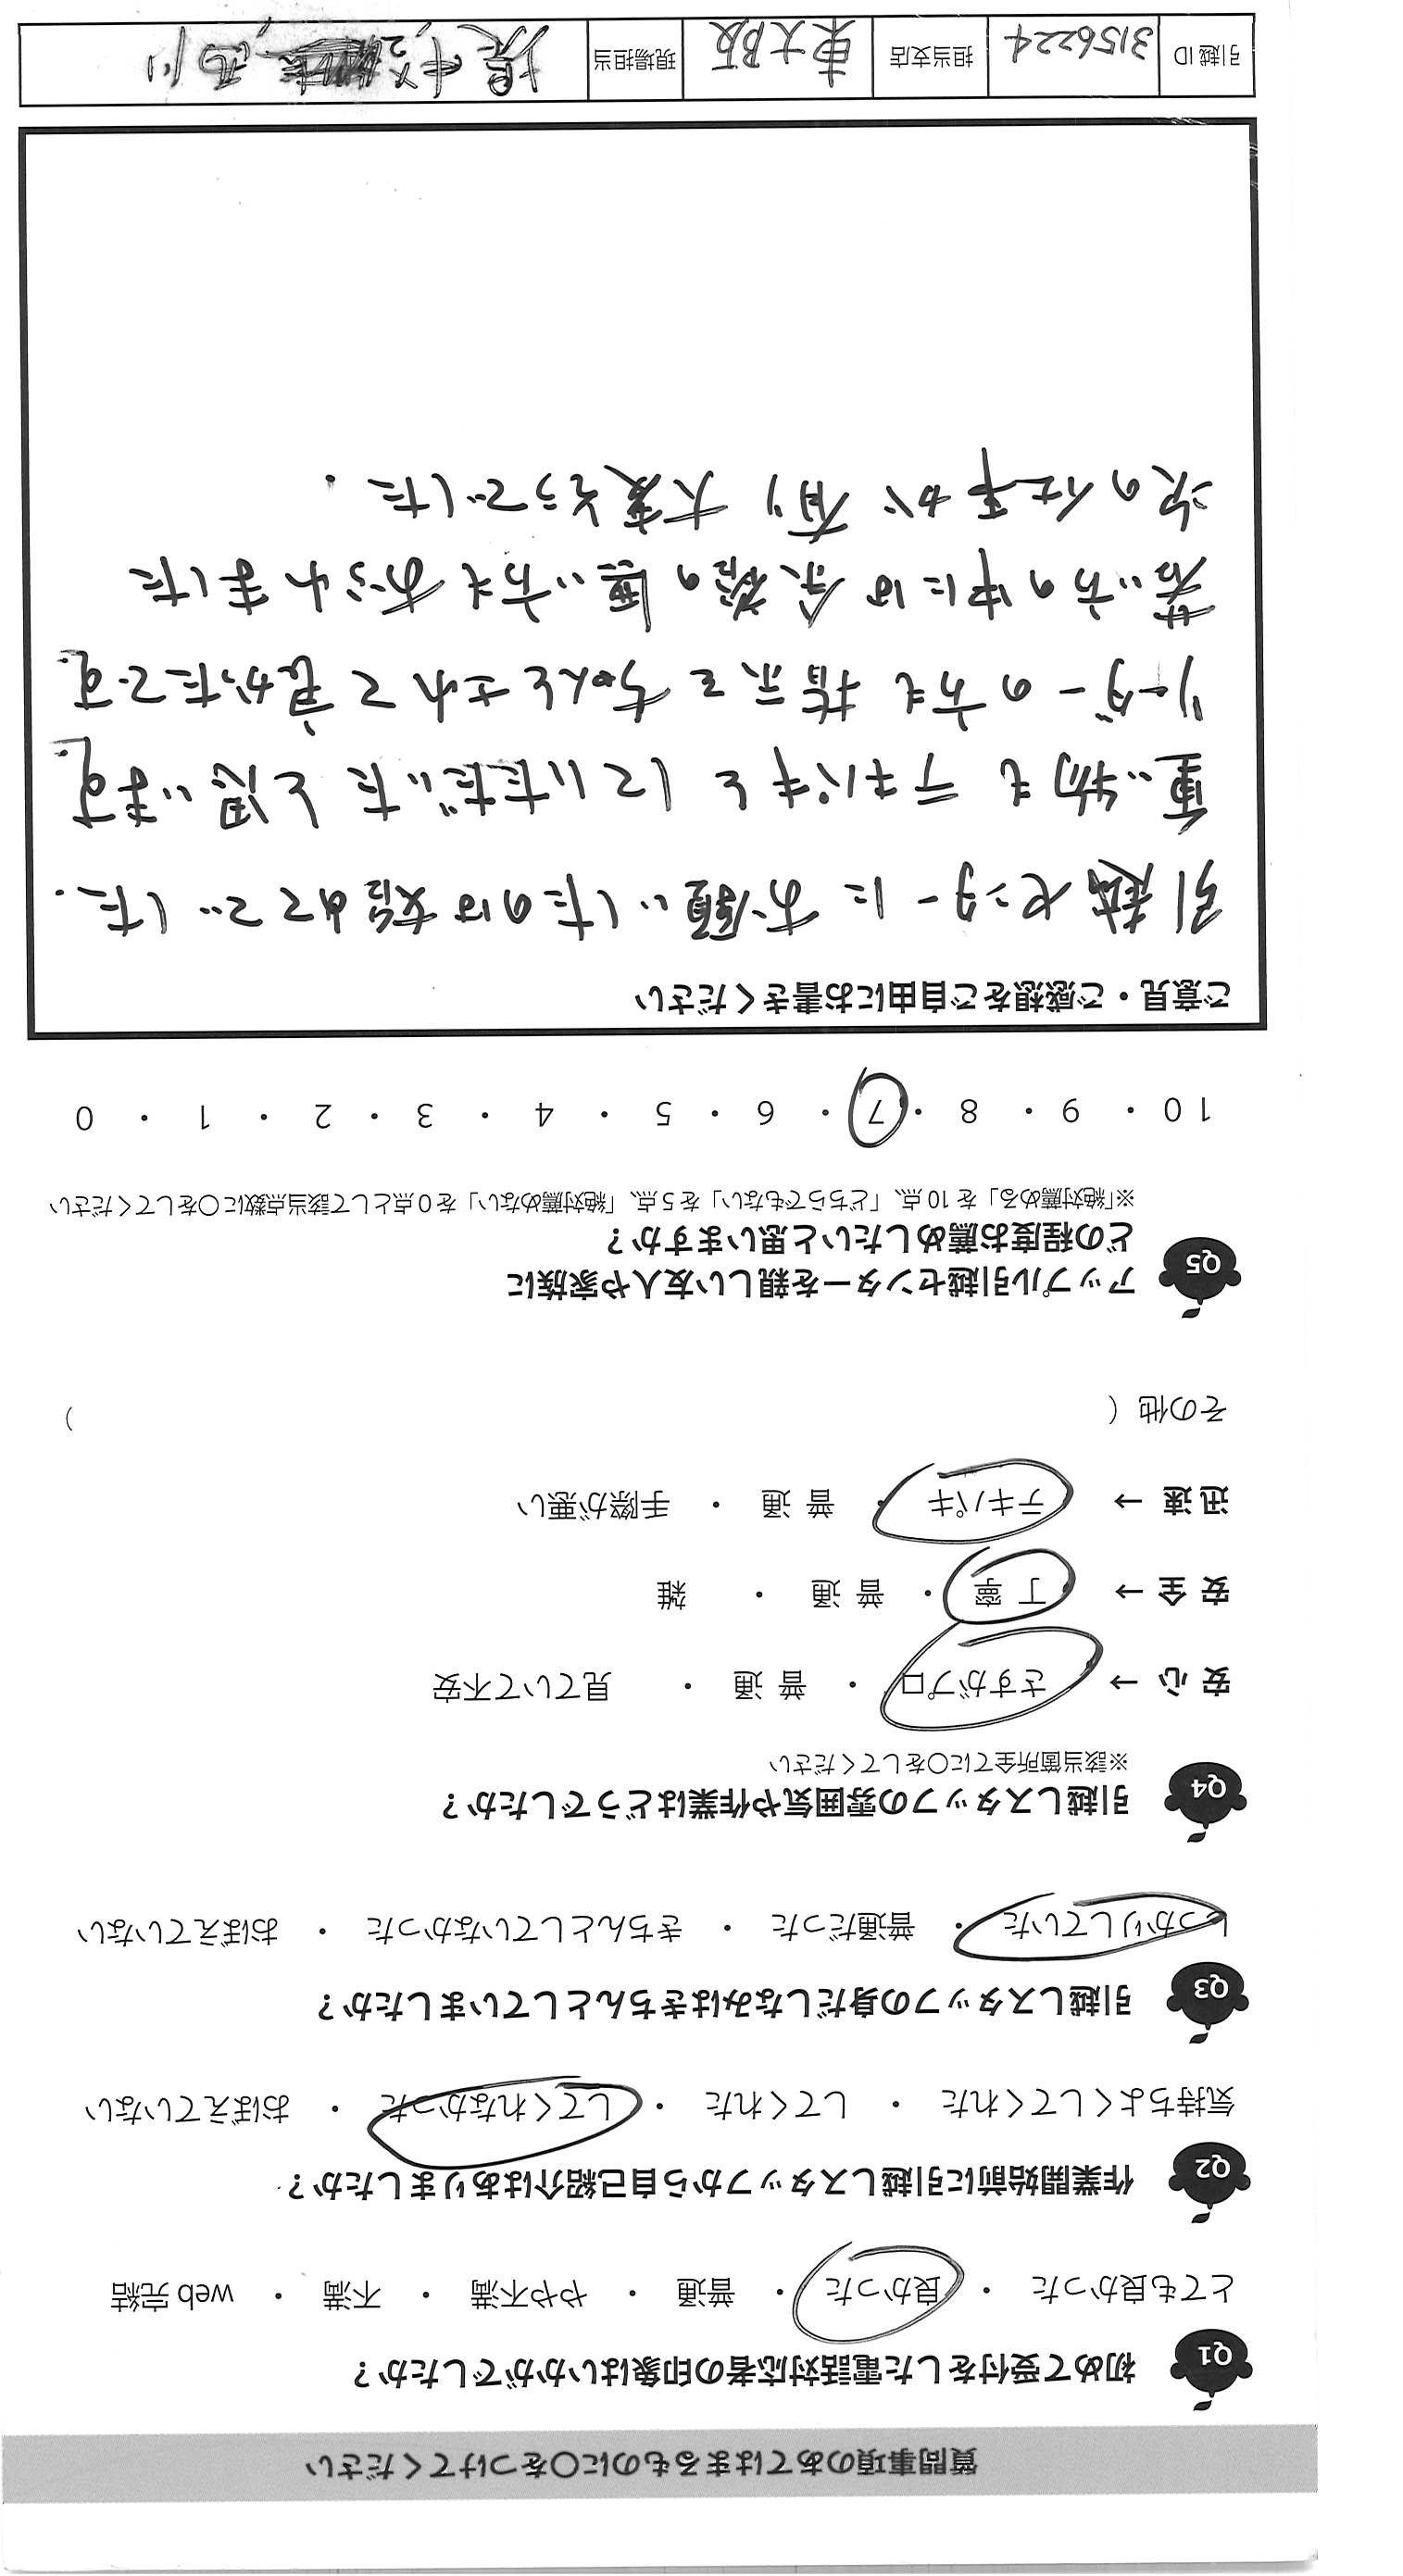 質問事項のあてはまるものに〇をつけてください
Q1 初めて受付をした電話対応者の印象はいかがでしたか？
とても良かった ・ 良かった ・ 普通 ・ やや不満 ・ 不満 ・ web 完結
Q2 作業開始前に引越しスタッフから自己紹介はありましたか？
気持ちよくしてくれた ・ してくれた ・ してくれなかった ・ おぼえていない
Q3 引越しスタッフの身だしなみはきちんとしていましたか？
しっかりしていた ・ 普通だった ・ きちんとしていなかった ・ おぼえていない
Q4 引越しスタッフの雰囲気や作業はどうでしたか？
※該当箇所全てに〇をしてください
安 心 → さすがプロ ・ 普 通 ・ 見ていて不安
安 全 → 丁 寧 ・ 普 通 ・ 雑
迅 速 → テキパキ ・ 普 通 ・ 手際が悪い
その他（ ）
Q5 アップル引越センターを親しい友人や家族に
どの程度お薦めしたいと思いますか？
※「絶対薦める」を 10 点、「どちらでもない」を 5 点、「絶対薦めない」を 0 点として該当点数に〇をしてください
10 ・ 9 ・ 8 ・ 7 ・ 6 ・ 5 ・ 4 ・ 3 ・ 2 ・ 1 ・ 0
ご意見・ご感想をご自由にお書きください
引越センターにお願いしたのは始めてでした.
重い物もテキパキとしていただいたと思います。
リーダーの方も指示をちゃんとされて良かったです。
若い方の中には余裕の無い方もおられました
次の仕事が有り大変そうでした.
引越 ID 3156224 担当支店 東大阪 現場担当